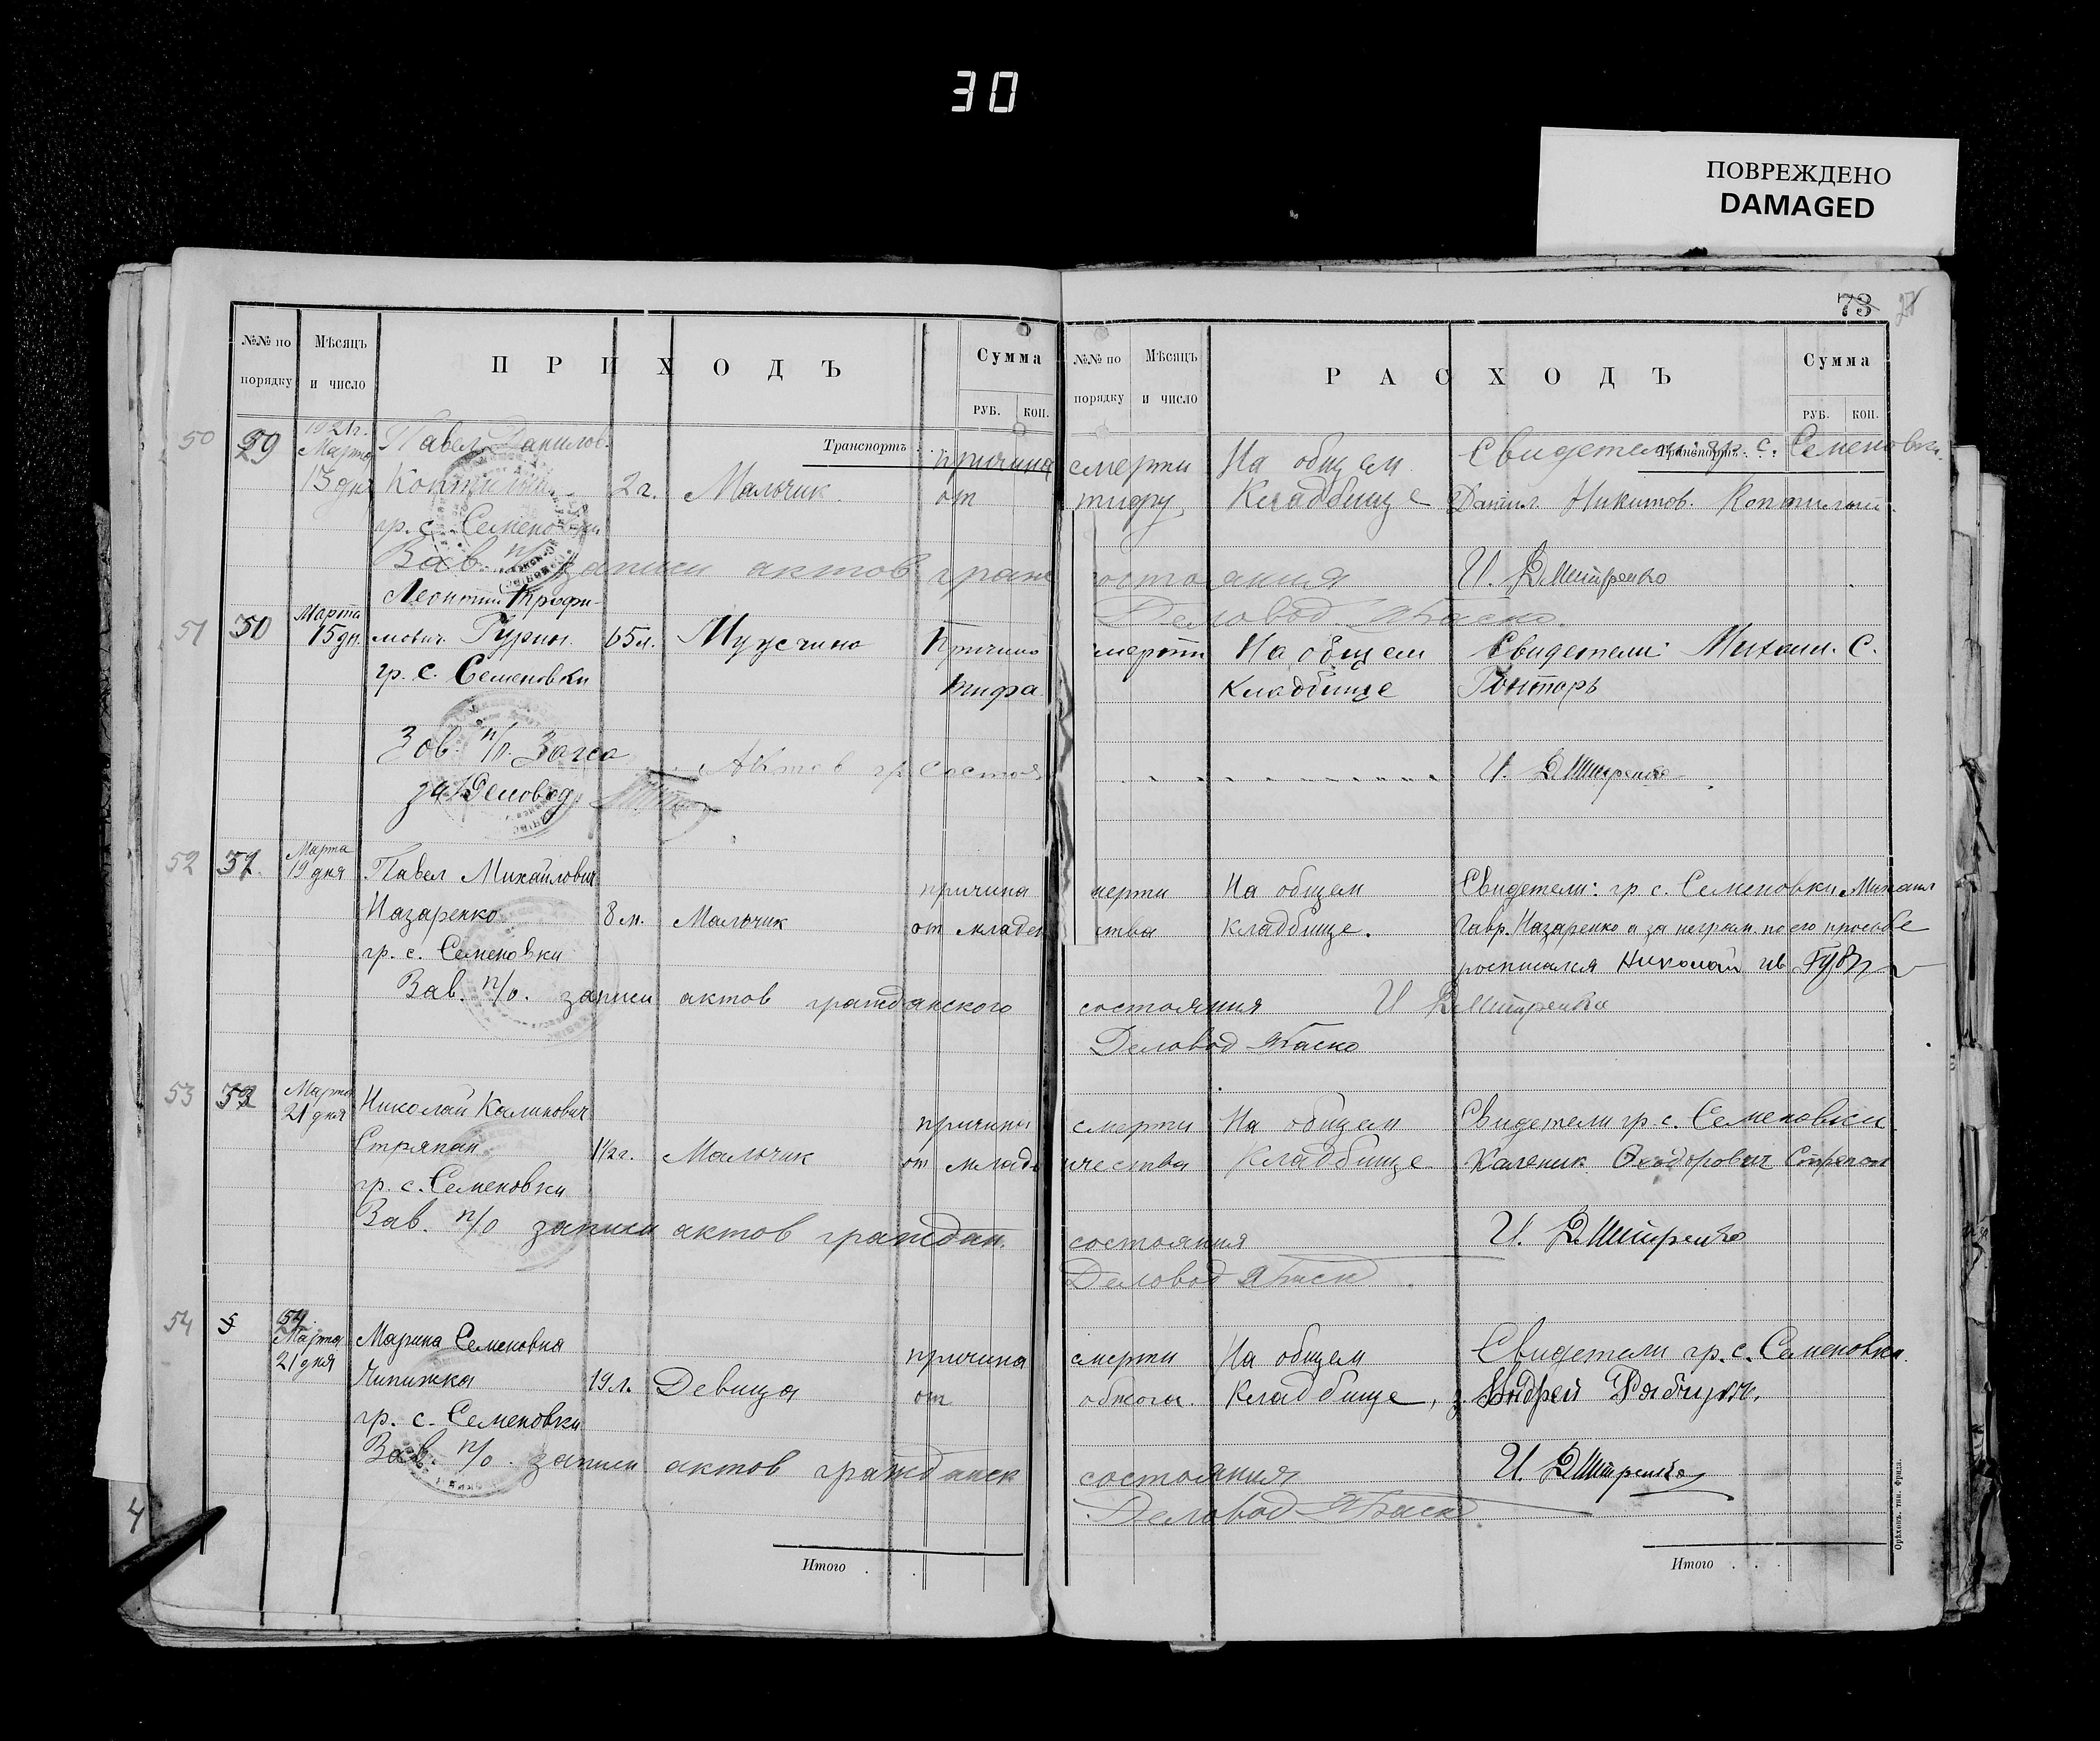 30
ПОВРЕЖДЕНО
DAMAGED
73
№№ по порядку
Мѣсяцъ и число
ПРИХОДЪ
Сумма
РУБ. КОП.
№№ по порядку
Мѣсяцъ и число
РАСХОДЪ
Сумма
РУБ. КОП.
Транспортъ
Транспортъ
50 1921г. Марта Павел Данилов. причина смерти На общем Свидетели гр. с. Семеновки
13 дня 2г. Мальчик. от тифу Кладбище Данил Никитов. Коптилый
гр. с. Семеновки
Зав. п/о записи актов граж состояния И. Дмитренко
Деловод
51 Марта Леонтий Трофи-
15 дн. мович Гурин 65л. Мужчина Причина смерти На общем Свидетели: Михаил. С.
гр. с. Семеновки тифа Кладбище Гонтарь
Зав. п/о. Загса Актов гр. состоя И. Дмитренко
за Деловод
52 Марта
19 дня Павел Михайлович причина смерти На общем Свидетели: гр. с. Семеновки Михаил
Назаренко 8 м. Мальчик от младен ства кладбище. Гавр. Назаренко а за неграм. по его просьбе
гр. с. Семеновки росписался Николай
Зав. п/о. записи актов гражданского состояния И Дмитренко
Деловод
53 Марта
21 дня Николай Каликович причина смерти На общем Свидетели гр. с. Семеновки
Стряпан 1 1/2 г. Мальчик от младе ичества Кладбище Каленик Феодорович
гр. с. Семеновки
Зав. п/о записи актов граждан. состояния И. Дмитренко
Деловод
54 Марта
21 дня Марина Семеновна причина смерти На общем Свидетели гр. с. Семеновки
19 л. Девица от обжога. Кладбище, Андрей
гр. с. Семеновки
Зав. п/о. записи актов гражданск состояния И. Дмитренко
Деловод
Итого
Итого
4
Орѣховъ. тип. Фрида.